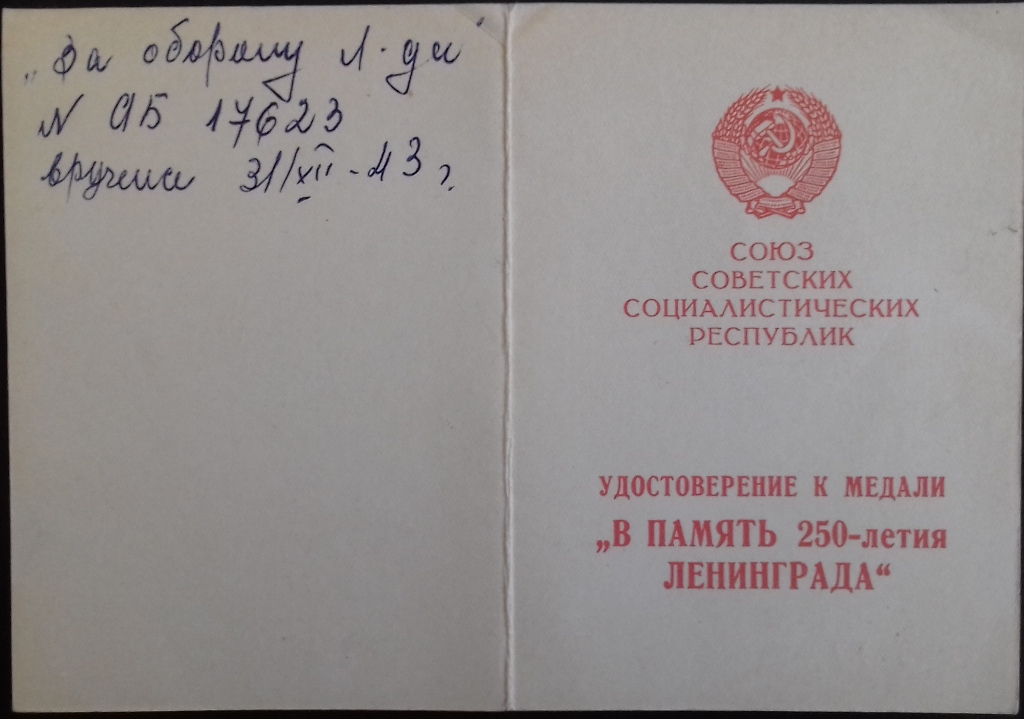 „За оборону Л-да
N АБ 17623
вручена 31/XII-43 г.
СОЮЗ
СОВЕТСКИХ
СОЦИАЛИСТИЧЕСКИХ
РЕСПУБЛИК
УДОСТОВЕРЕНИЕ К МЕДАЛИ
„В ПАМЯТЬ 250-летия
ЛЕНИНГРАДА“